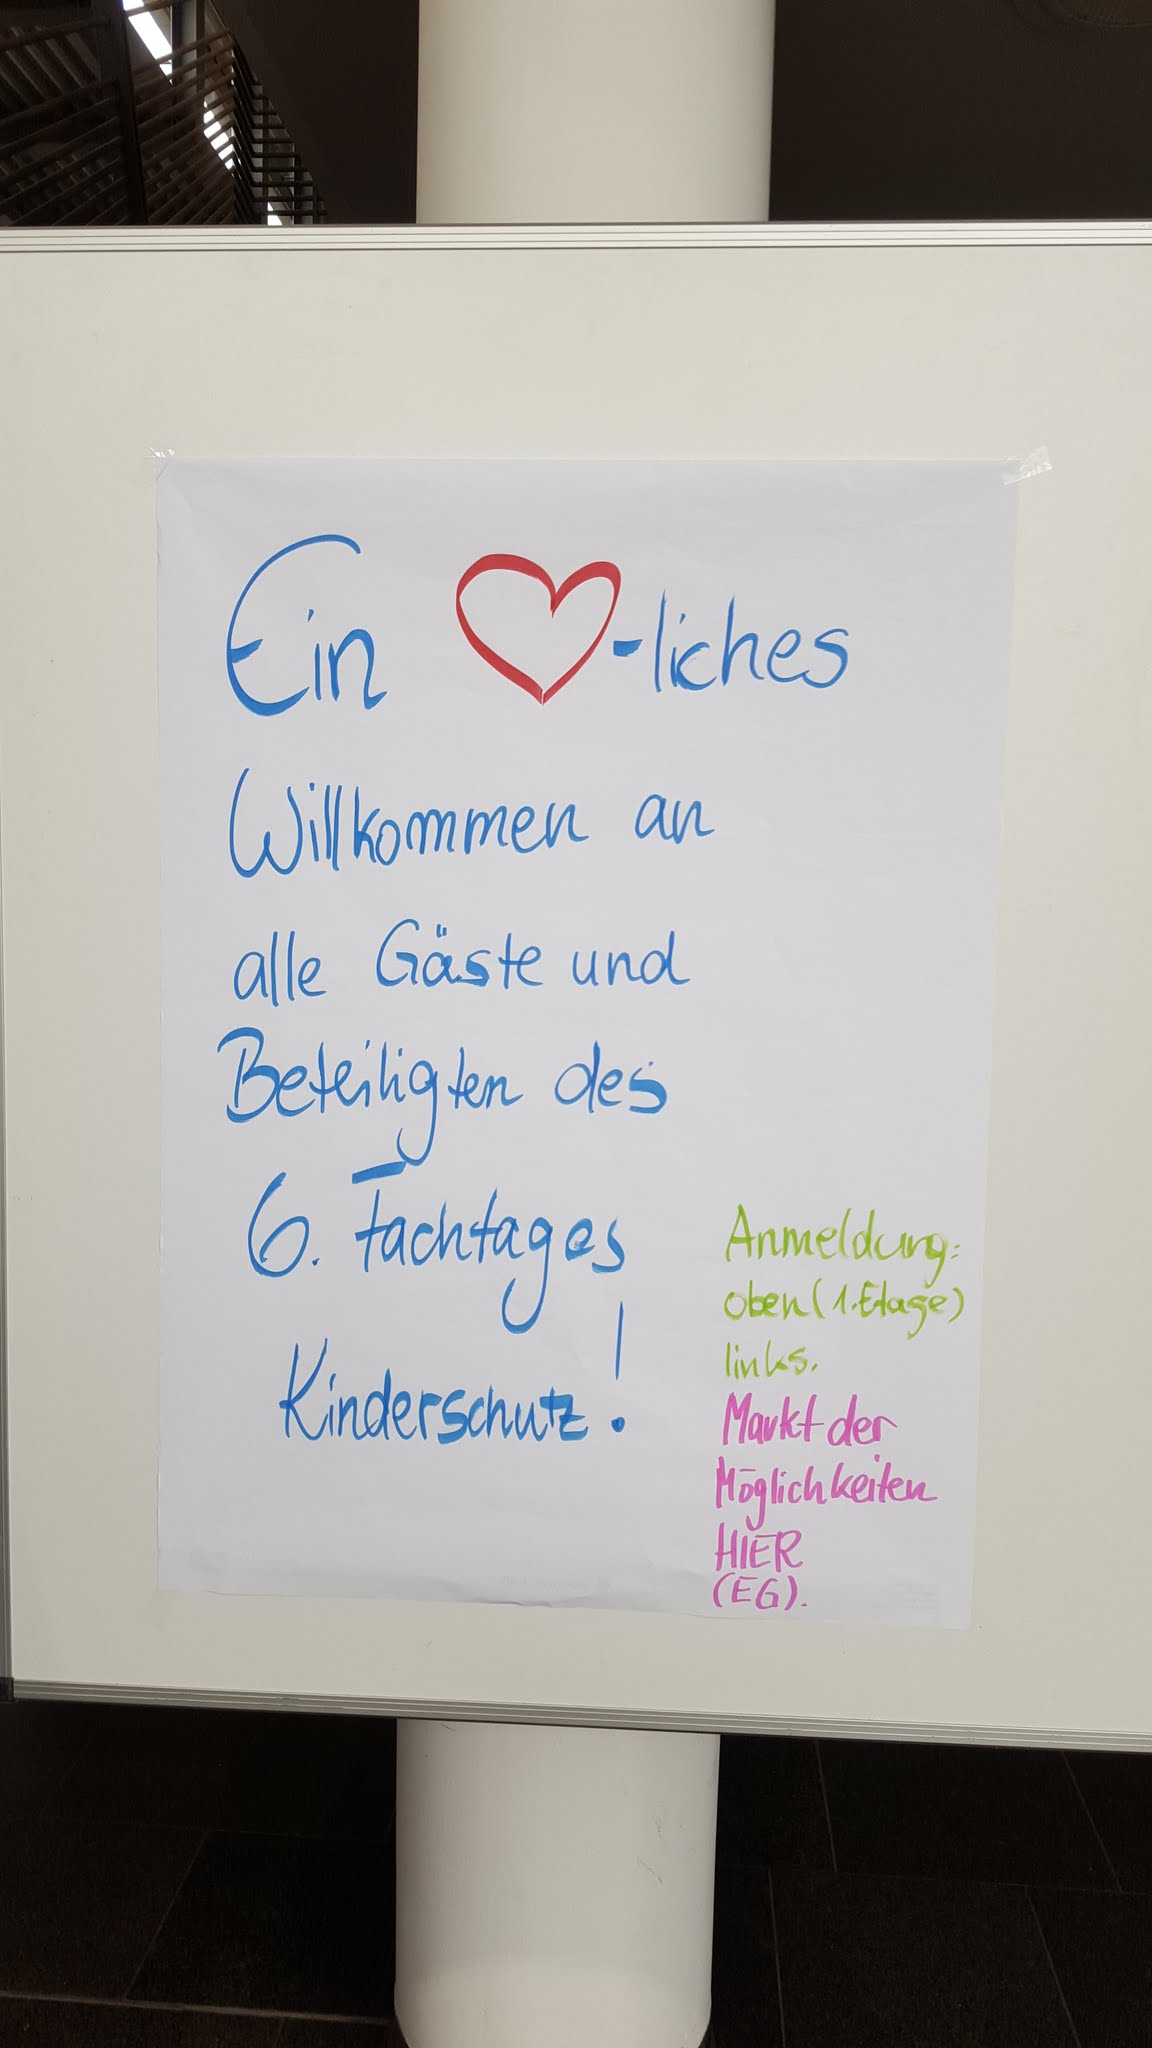 Ein ❤-liches
Willkommen an
alle Gäste und
Beteiligten des
6. Fachtages
Kinderschutz!
Anmeldung:
oben (1. Etage)
links.
Markt der
Möglichkeiten
HIER
(EG).